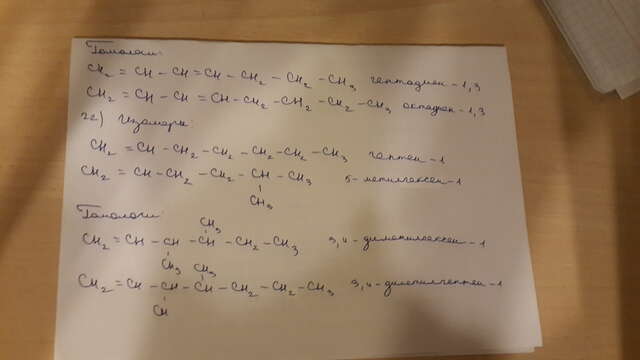 Гомологи:
CH₂ = CH – CH = CH – CH₂ – CH₂ – CH₃ гептадиен – 1,3
CH₂ = CH – CH = CH – CH₂ – CH₂ – CH₂ – CH₃ октадиен – 1,3
2г) Изомеры:
CH₂ = CH – CH₂ – CH₂ – CH₂ – CH₂ – CH₃ гептен – 1
CH₂ = CH – CH₂ – CH₂ – CH – CH₃ 5 – метилгексен – 1
CH₃
Гомологи:
CH₃
CH₂ = CH – CH – CH – CH₂ – CH₃ 3,4 – диметилгексен – 1
CH₃ CH₃
CH₂ = CH – CH – CH – CH₂ – CH₂ – CH₃ 3,4 – диметилгептен – 1
CH